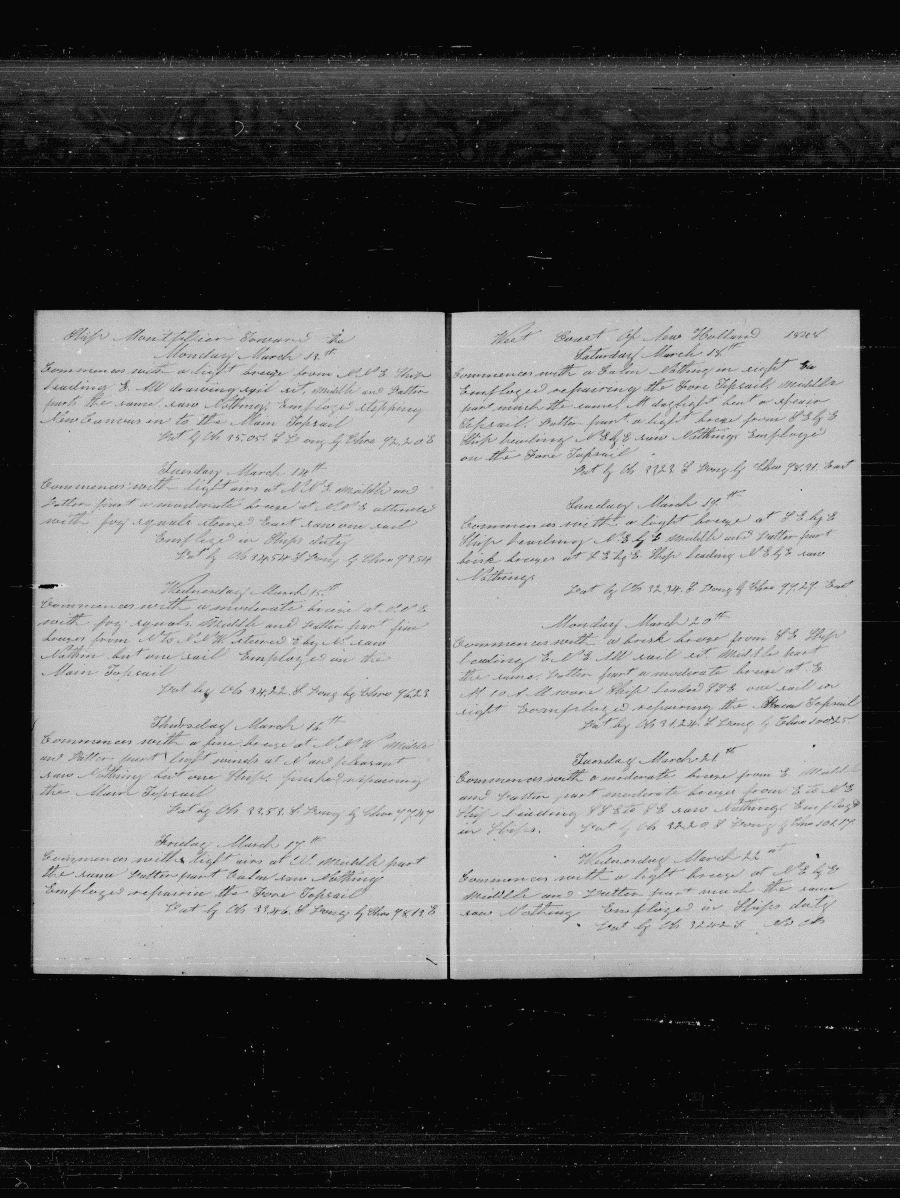 Ship Montpelier Toward the
Monday March 13th
Commences with a light breeze from N.N.E Ship
heading E. All drawing sail set, Middle and Latter
part the same, saw Nothing. Employed
New Canvas in to the Main Topsail
Lat by Ob 35.05. S Long by Chro 92.20 E
Tuesday March 14th
Commences with light airs at N.N.E Middle and
Latter part a moderate breeze at N.N.E attended
with squals stered East saw one sail
Employed in Ships duty
Lat by Ob 34.54 S Long by Chro 93.54
Wednesday March 15th
Commences with a moderate breeze at N.N.E
with squals. Middle and Latter part fine
breezes from N to N.N.W stered E by N. saw
Nothin but one sail Employed in the
Main Topsail
Lat by Ob 34.22 S Long by Chro 96.23
Thursday March 16th
Commences with a fine breeze at N.N.W Middle
an Latter part light winds at N an pleasant
saw Nothing but one Ship. repairing
the Main Topsail
Lat by Ob 33.53 S Long by Chro 97.47
Friday March 17th
Commences with light airs at Middle part
the same Latter part Calm saw Nothing
Employed repairin the Fore Topsail
Lat by Ob 33.46 S Long by Chro 98.13 E
West Coast Of New Holland 1848
Saturday March 18th
Commences with a Calm Nothing in sight
Employed repairing the Fore Topsail, Middle
part much the same, At daylight bent a
Topsail. Latter part a light breeze from S E by E
Ship heading N E by E saw Nothing. Employed
on the Fore Topsail
Lat by Ob 33.23 S Long by Chro 98.31. East
Sunday March 19th
Commences with a light breeze at S E by E
Ship heading N E by E Middle and Latter part
brisk breezes at S E by E Ship heading N E by E saw
Nothing.
Lat by Ob 32.34. S Long by Chro 99.29 East
Monday March 20th
Commences with a brisk breeze from S E Ship
heading E.N.E All sail set Middle part
the same. Latter part a moderate breeze at E
At 10 A.M wore Ship headed one sail in
sight Eemployed repairing the Topsail
Lat by Ob 31.24 S Long by Chro 100.25
Tuesday March 21th
Commences with a moderate breeze from E Middle
and Latter part moderate breezes from E to N E
Ship heading S S E to S E saw Nothing Employd
in Ships. Lat by Ob 32.20 S Long by Chro 101.17
Wednesday March 22
Commences with a light breeze at N E by E
Middle and Latter part much the same
saw Nothing Employed in Ships duty
Lat by Ob 32.42 S No Ob